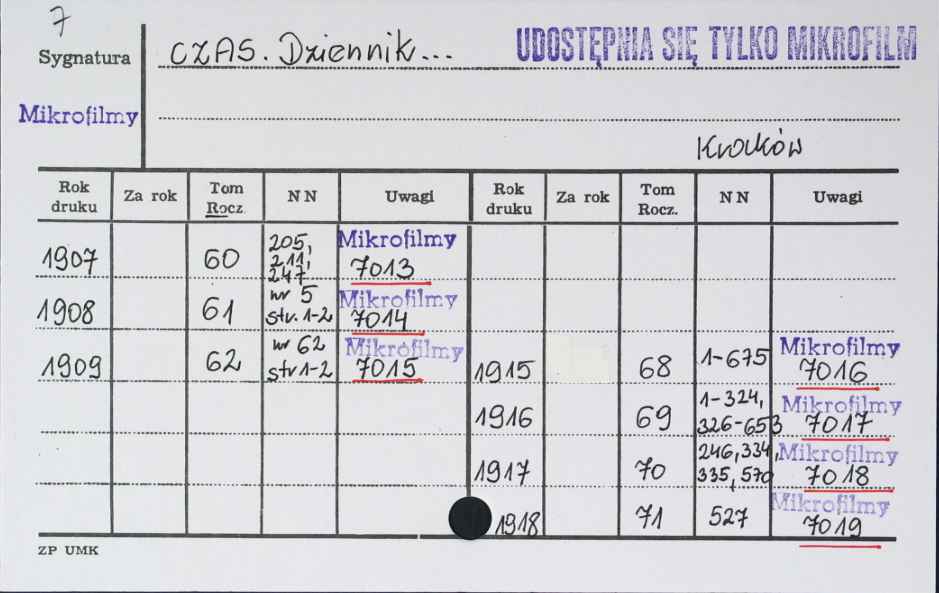 7
Sygnatura CZAS. Dziennik... UDOSTĘPNIA SIĘ TYLKO MIKROFILM
Mikrofilmy
Kraków
Rok druku Za rok Tom Rocz. NN Uwagi Rok druku Za rok Tom Rocz. NN Uwagi
1907 60 205, 211, 247 Mikrofilmy 7013
1908 61 nr 5 str. 1-2 Mikrofilmy 7014
1909 62 nr 62 str 1-2 Mikrofilmy 7015 1915 68 1-675 Mikrofilmy 7016
1916 69 1-324, 326-653 Mikrofilmy 7017
1917 70 246, 334, 335, 570 Mikrofilmy 7018
1918 71 527 Mikrofilmy 7019
ZP UMK